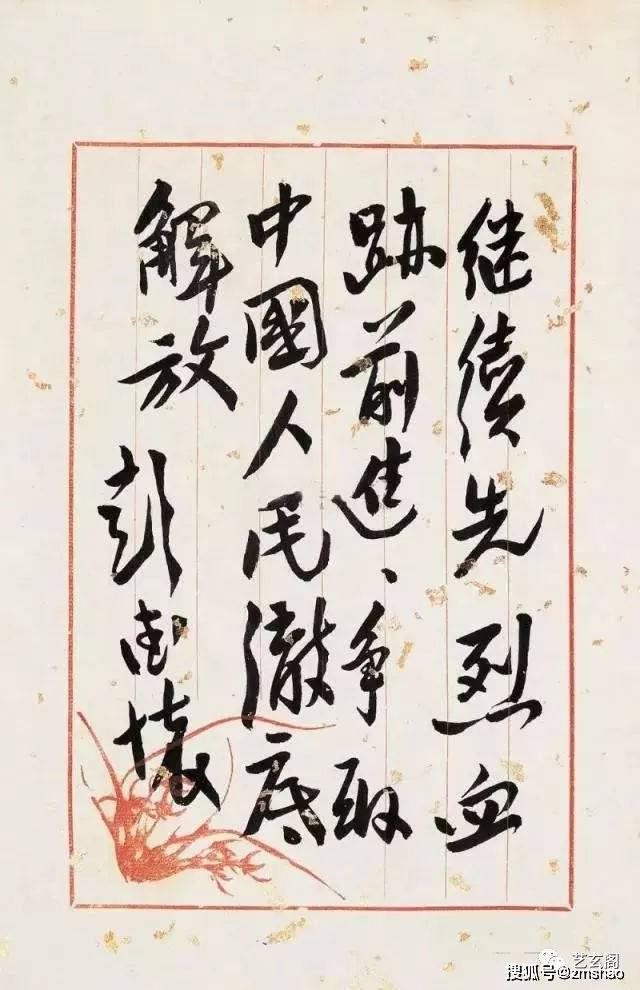 继续先烈血
跡前進、争取
中國人民徹底
解放 彭德懷
艺玄阁
搜狐号@zmshao